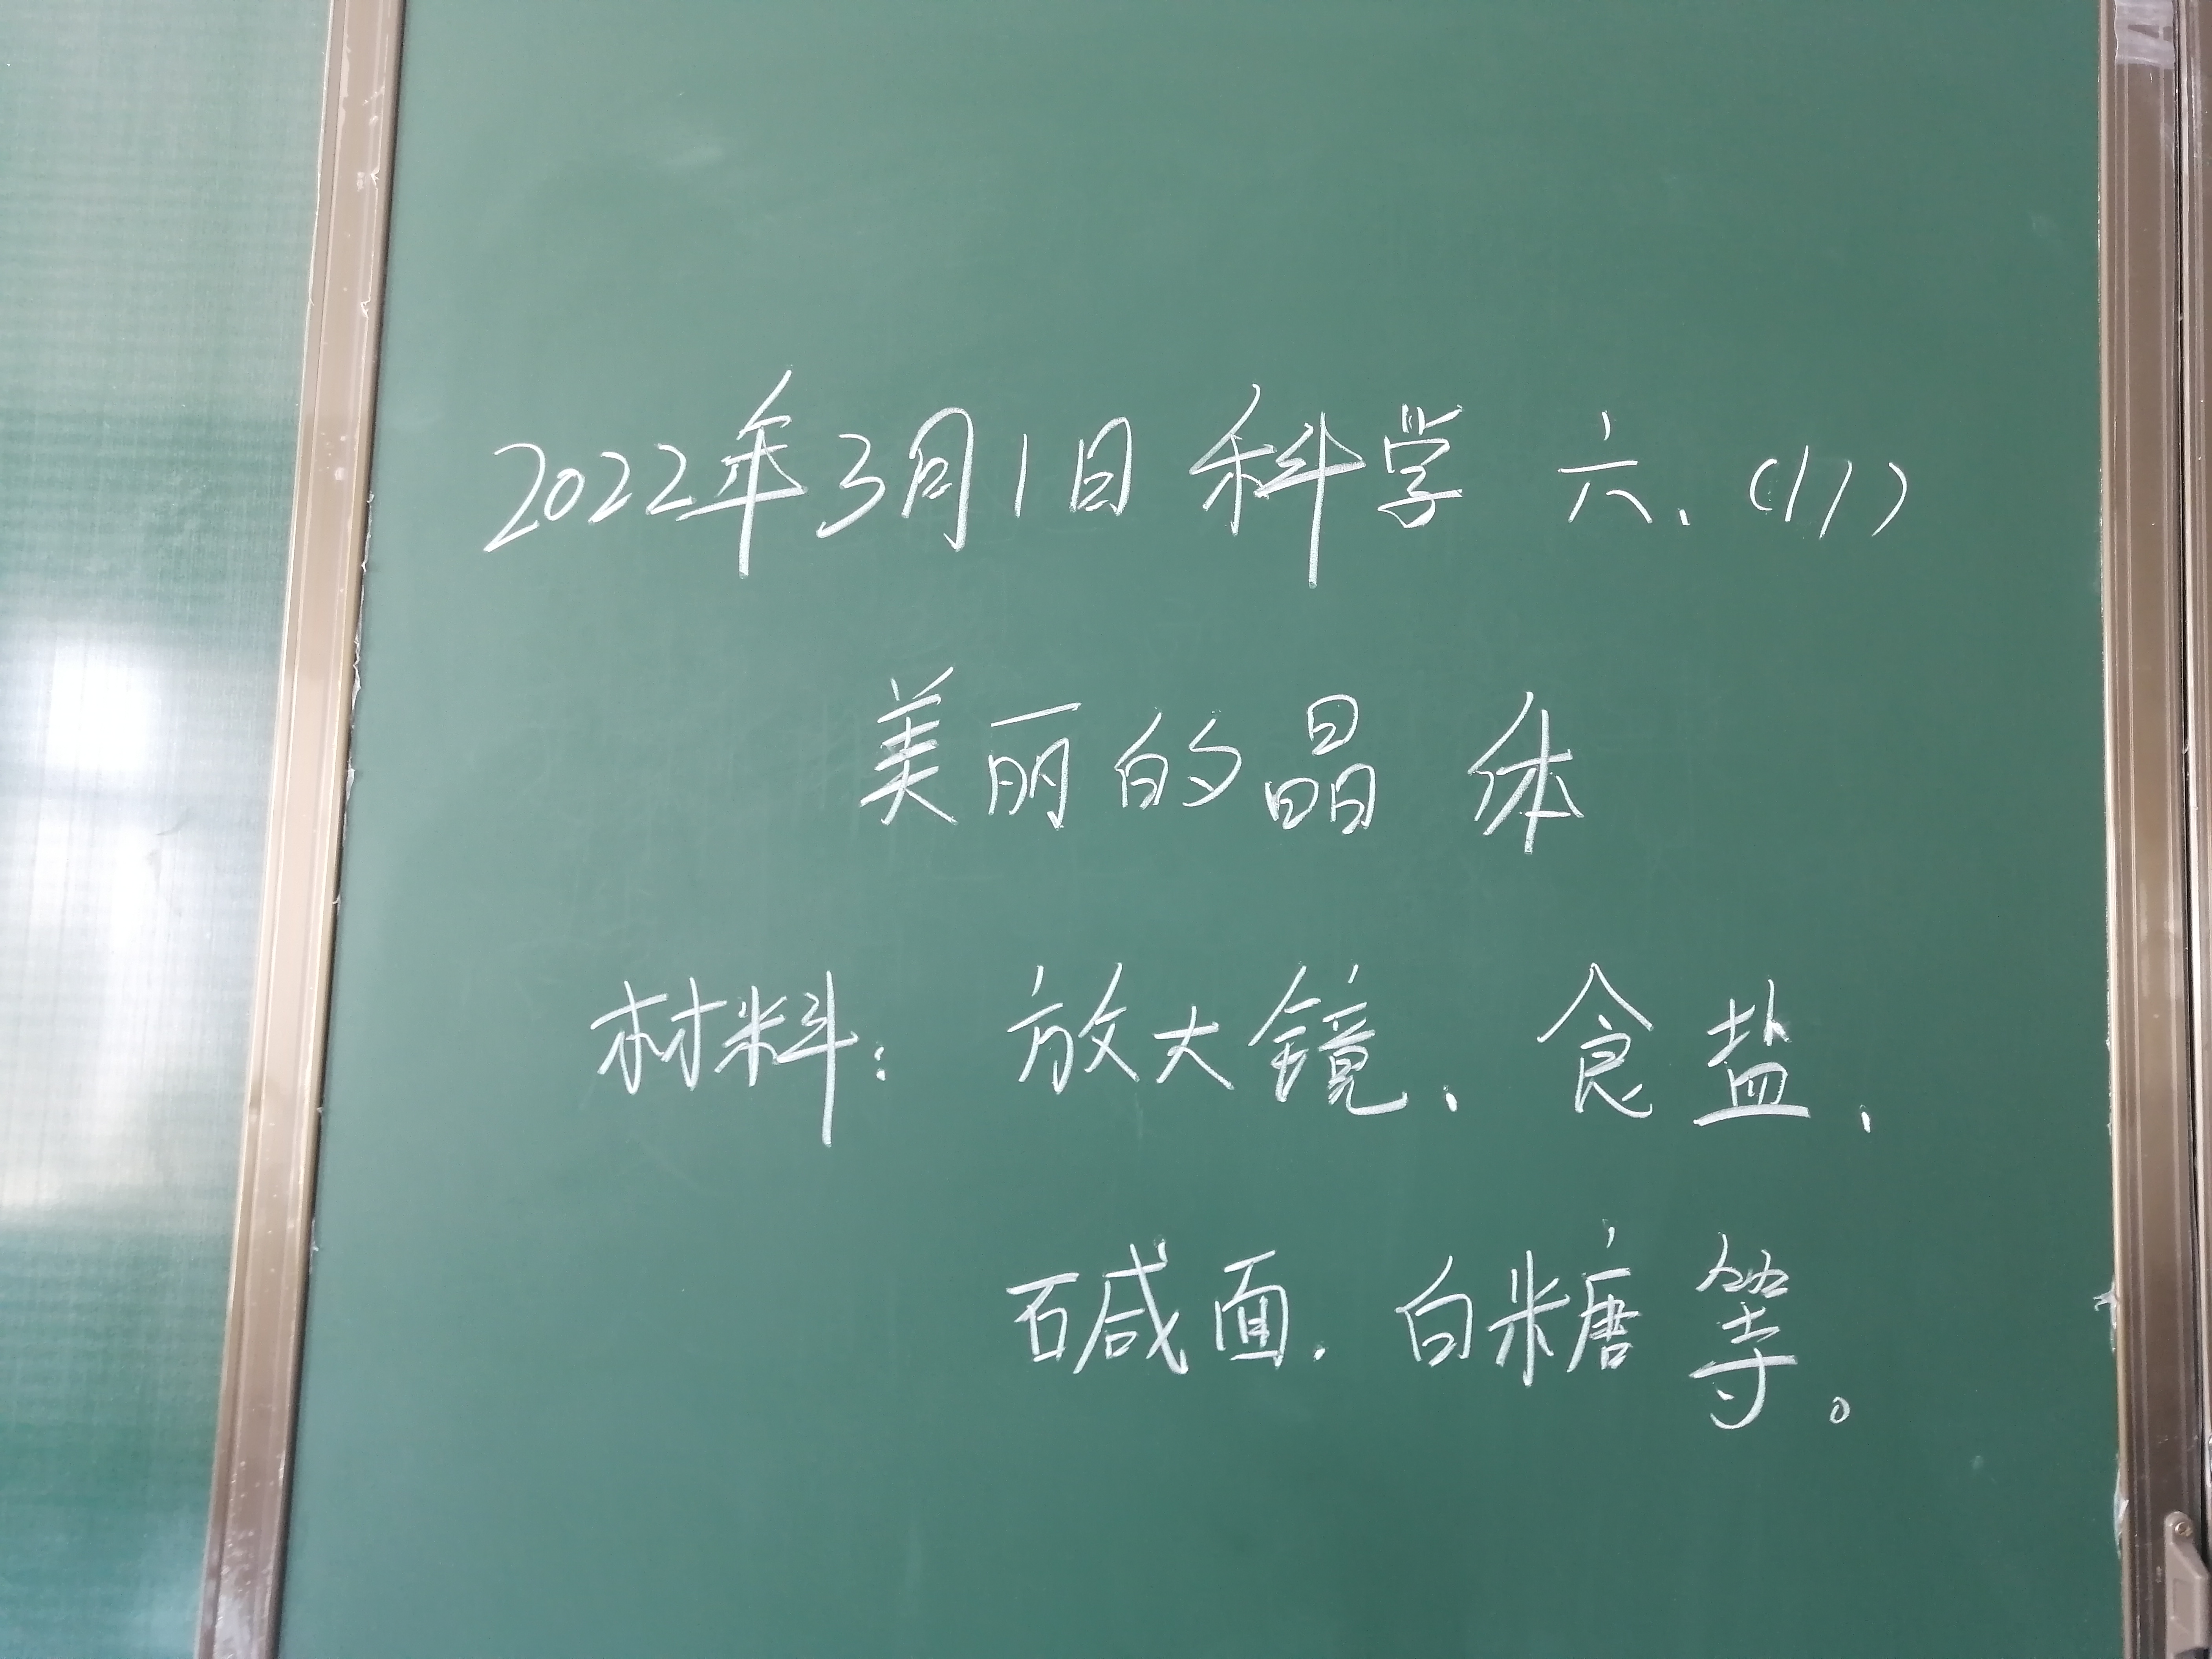 2022年3月1日 科学 六、(11)
美丽的晶体
材料：放大镜、食盐、
碱面、白糖等。